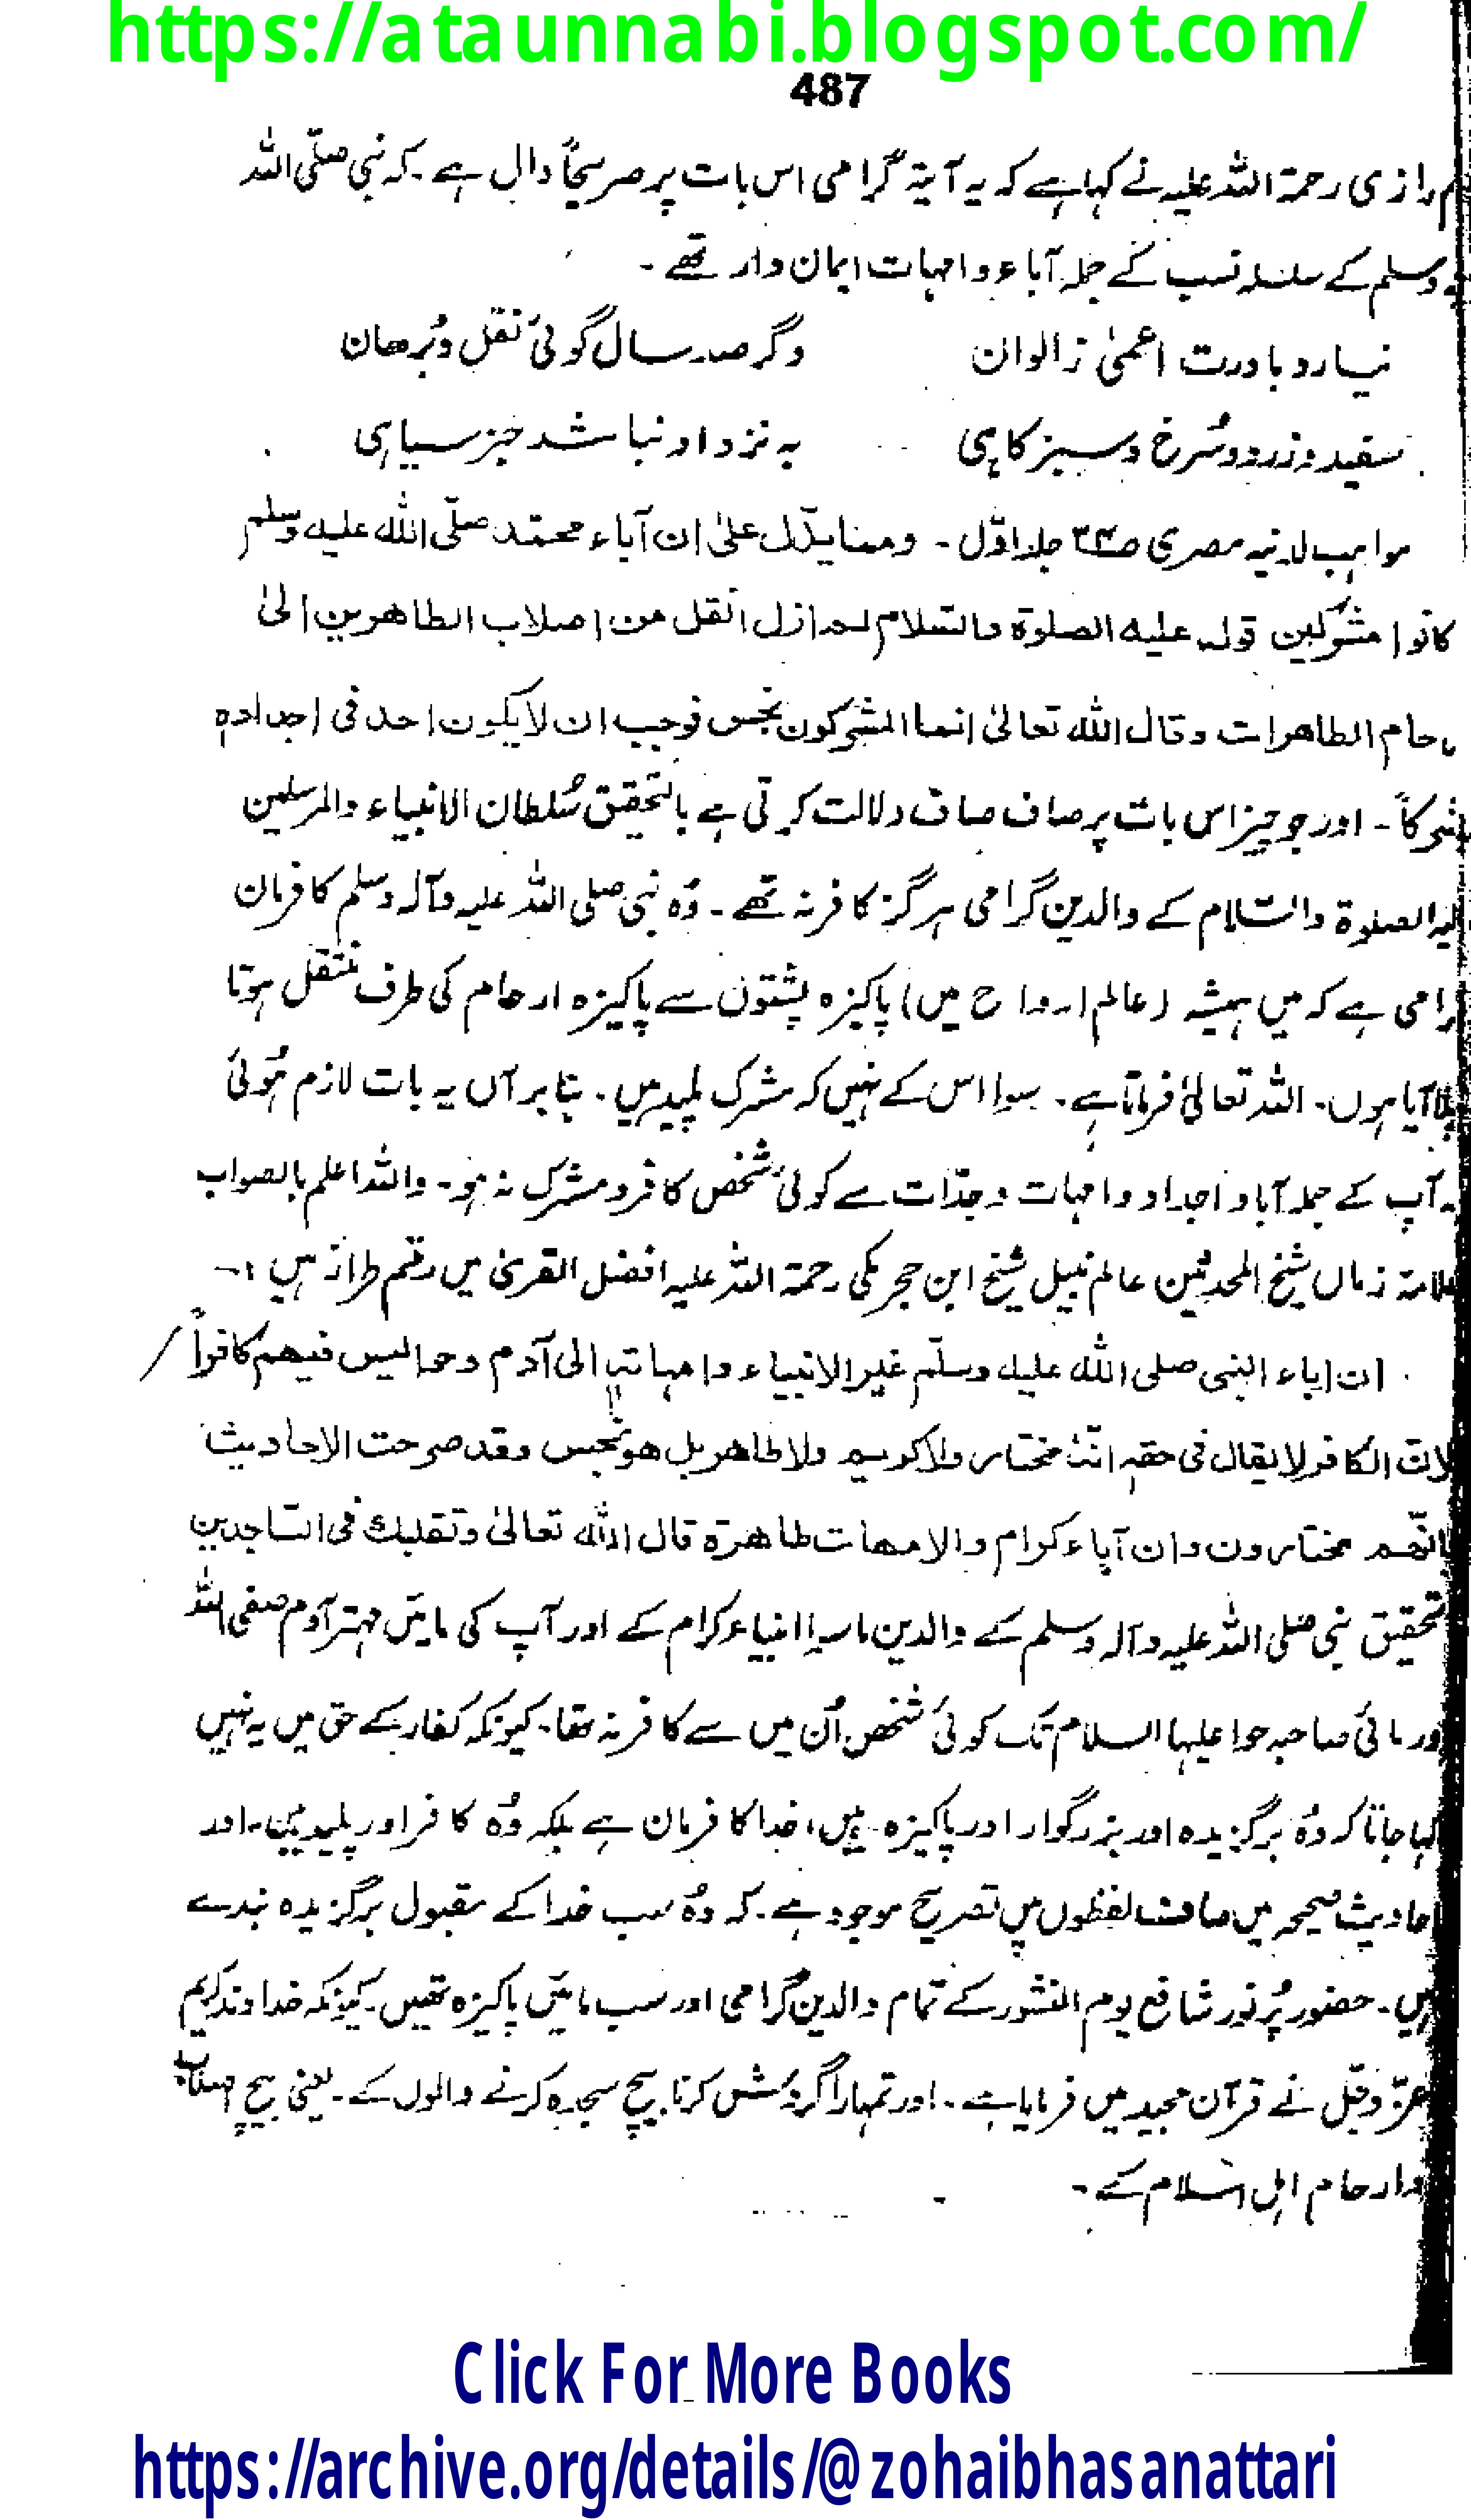 https://ataunnabi.blogspot.com/
487
رازی رحمۃ اللہ علیہ نے کہا ہے کہ یہ آیۃ گرامی اس بات پر صریحاً دال ہے ۔ کہ نبی صلّی اللہ
وسلم کے سلسلہ نسب کے جملہ آباء و امہات ایمان دار تھے ۔
نیارد باورت اعمیٰ زالوان وگر صد سال گوئی نقل و بُرھان
سفید و زرد و سُرخ و سبز کاہی بہ نزد او نباشد جز سیاہی
مواہب لدنیہ مصری ص۳۴ جلد اوّل ۔ ومما یدّل علیٰ ان آباء محمّد صلّی اللہ علیہ وسلم
کانوا مشرکین قولہ علیہ الصلوۃ والسّلام لم ازل انقل من اصلاب الطاهرین الیٰ
رحام الطاهرات وقال اللہ تعالیٰ انما المشرکون نجس فوجب ان لا یکون احد فی اجدادہ
شرکاً ۔ اور جو چیز اس بات پر صاف صاف دلالت کرتی ہے بالتحقیق سُلطان الانبیاء والمرسلین
الصلوۃ والسّلام کے والدین گرامی ہرگز کافر نہ تھے ۔ وُہ نبی صلی اللہ علیہ وآلہ وسلم کا فرمان
رامی ہے کہ میں ہمیشہ (عالم ارواح میں) پاکیزہ پشتوں سے پاکیزہ ارحام کی طرف منتقل ہوتا
آیا ہوں ۔ اللہ تعالیٰ فرماتا ہے ۔ سوا اس کے نہیں کہ مشرک پلید ہیں ۔ بنا بر آں یہ بات لازم ہُوئی
آپ کے جملہ آبا و اجداد و امہات و جدّات سے کوئی شخص کافر و مشرک نہ ہو ۔ واللہ اعلم بالصواب
علامۃ زماں شیخ المحدثین عالم نبیل شیخ ابن حجر مکی رحمۃ اللہ علیہ افضل القریٰ میں رقم طراز ہیں :۔
ان اباء النبی صلی اللہ علیہ وسلّم غیر الانبیاء وامهاتہ الی آدم وحوا لیس فیهم کافراً
لان الکافر لا یقال فی حقہ انّہٗ مختار ولا کریم ولا طاهر بل هو نجس وقد صرحت الاحادیث
انّهم مختارون وان آباء کرام والامهات طاهرۃ قال اللہ تعالیٰ وتقلبك فی السّاجدین
تحقیق نبی صلی اللہ علیہ وآلہ وسلم کے والدین ماسوا انبیاء کرام کے اور آپ کی مائیں مہتر آدم صفی اللہ
ور مائی صاحبہ حوا علیہا السلام تک کوئی شخص اُن میں سے کافر نہ تھا ۔ کیونکہ کفار کے حق میں یہ نہیں
کہا جاتا کہ وُہ برگزیدہ اور بزرگوار اور پاکیزہ ہیں، خدا کا فرمان ہے بلکہ وُہ کافر اور پلید ہیں ۔ اور
احادیث صحیحہ میں صاف لفظوں میں تصریح موجود ہے ۔ کہ وُہ سب خدا کے مقبول برگزیدہ بندے
ہیں ۔ حضور پُر نور شافع یوم النشور کے تمام والدین گرامی اور سب مائیں پاکیزہ تھیں ۔ کیونکہ خداوند کریم
عزّ وجّل نے قرآن مجید میں فرمایا ہے ۔ اور تمہارا گردش کرنا بیچ سجدہ کرنے والوں کے ۔ یعنی بیچ اصلاب
وارحام اہل اسلام کے ۔
Click For More Books
https://archive.org/details/@zohaibhasanattari